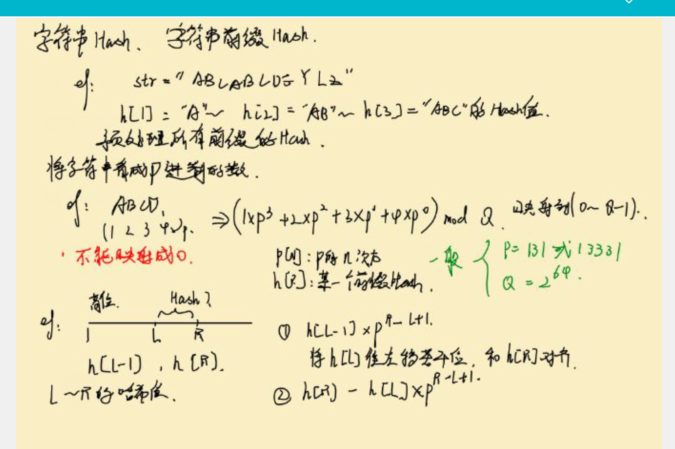 字符串Hash、字符串前缀Hash.
eg: str = "ABCABCDEYLZ"
h[1] = "A"~ h[2] = "AB"~ h[3] = "ABC"的Hash值.
预处理所有前缀的Hash.
将字符串看成P进制的数.
eg: ABCD, ⇒ (1×p³+2×p²+3×p¹+4×p⁰) mod Q. 映射到(0~Q-1).
(1 2 3 4)p.
·不能映射成0.
p[n]: p的n次方
h[R]: 某一个前缀Hash.
一般 { P = 131 或 13331
Q = 2⁶⁴.
eg: 高位. Hash?
1 L R
h[L-1], h[R].
L~R的哈希值.
① h[L-1]×p^R-L+1.
将h[L]值左移若干位,和h[R]对齐.
② h[R] - h[L]×p^R-L+1.